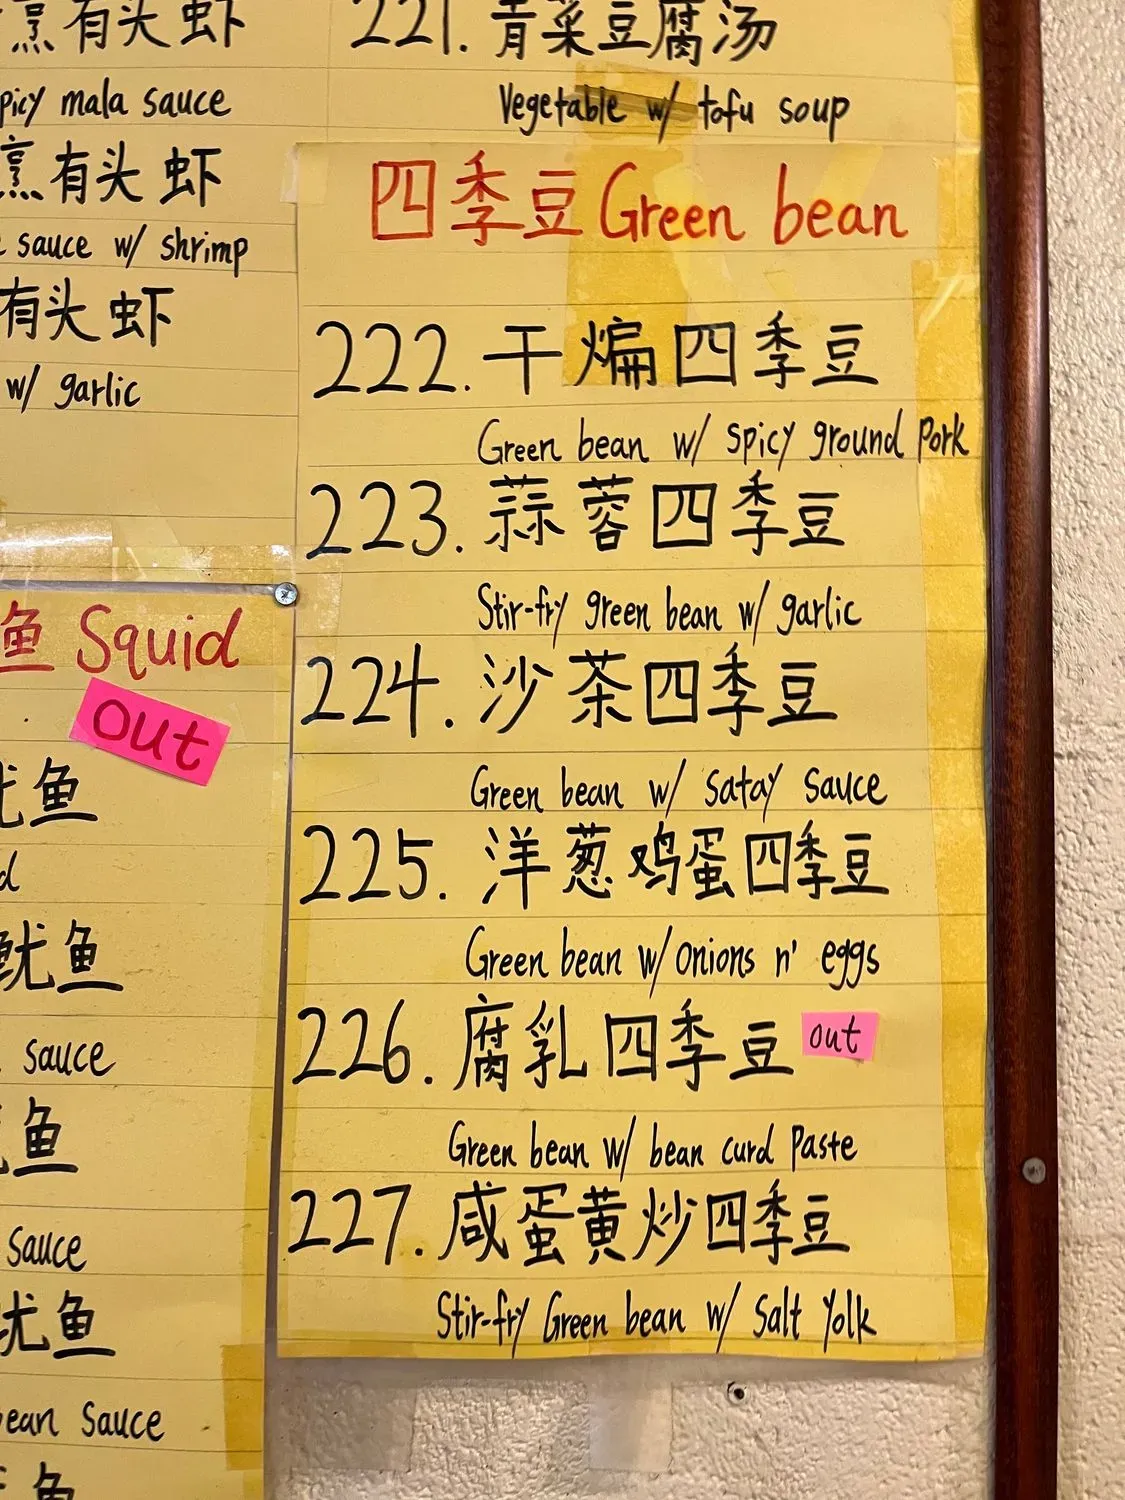 烹有头虾
spicy mala sauce
烹有头虾
sauce w/ shrimp
有头虾
w/ garlic
鱼 Squid
out
鱿鱼
鱿鱼
sauce
鱼
sauce
鱿鱼
bean Sauce
鱼
221. 青菜豆腐汤
Vegetable w/ tofu soup
四季豆 Green bean
222. 干煸四季豆
Green bean w/ spicy ground pork
223. 蒜蓉四季豆
Stir-fry green bean w/ garlic
224. 沙茶四季豆
Green bean w/ satay sauce
225. 洋葱鸡蛋四季豆
Green bean w/ onions n' eggs
226. 腐乳四季豆 out
Green bean w/ bean curd Paste
227. 咸蛋黄炒四季豆
Stir-fry Green bean w/ Salt Yolk